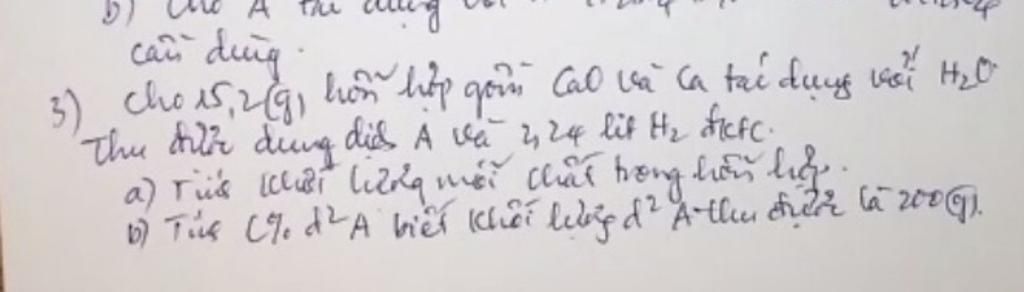 b) Cho A tác dụng với
cần dùng.
3) Cho 15,2(g) hỗn hợp gồm CaO và Ca tác dụng với H₂O
Thu được dung dịch A và 2,24 lít H₂ đktc.
a) Tính khối lượng mỗi chất trong hỗn hợp.
b) Tính C% d² A biết khối lượng d² A thu được là 200(g).